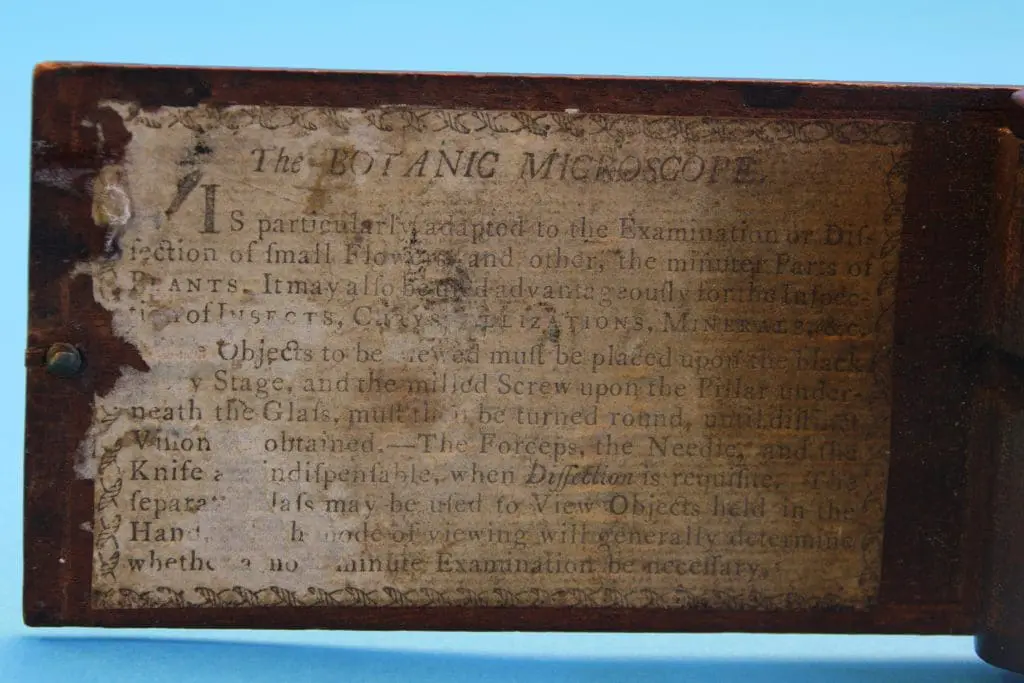 The BOTANIC MICROSCOPE.
IS particularly adapted to the Examination or Diſ-
ſection of ſmall Flowers and other, the minuter Parts of
PLANTS. It may alſo be uſed advantageouſly for the Inſpec-
tion of INSECTS, CRYSTALLIZATIONS, MINERALS, &c.
Objects to be viewed muſt be placed upon the black
Stage, and the milled Screw upon the Pillar under-
neath the Glaſs, muſt then be turned round, until diſtinct
Viſion obtained.—The Forceps, the Needle, and the
Knife indiſpenſable, when Diſſection is requiſite. The
ſeparate Glaſs may be uſed to View Objects held in the
Hand, mode of viewing will generally determine
whether a minute Examination be neceſſary.